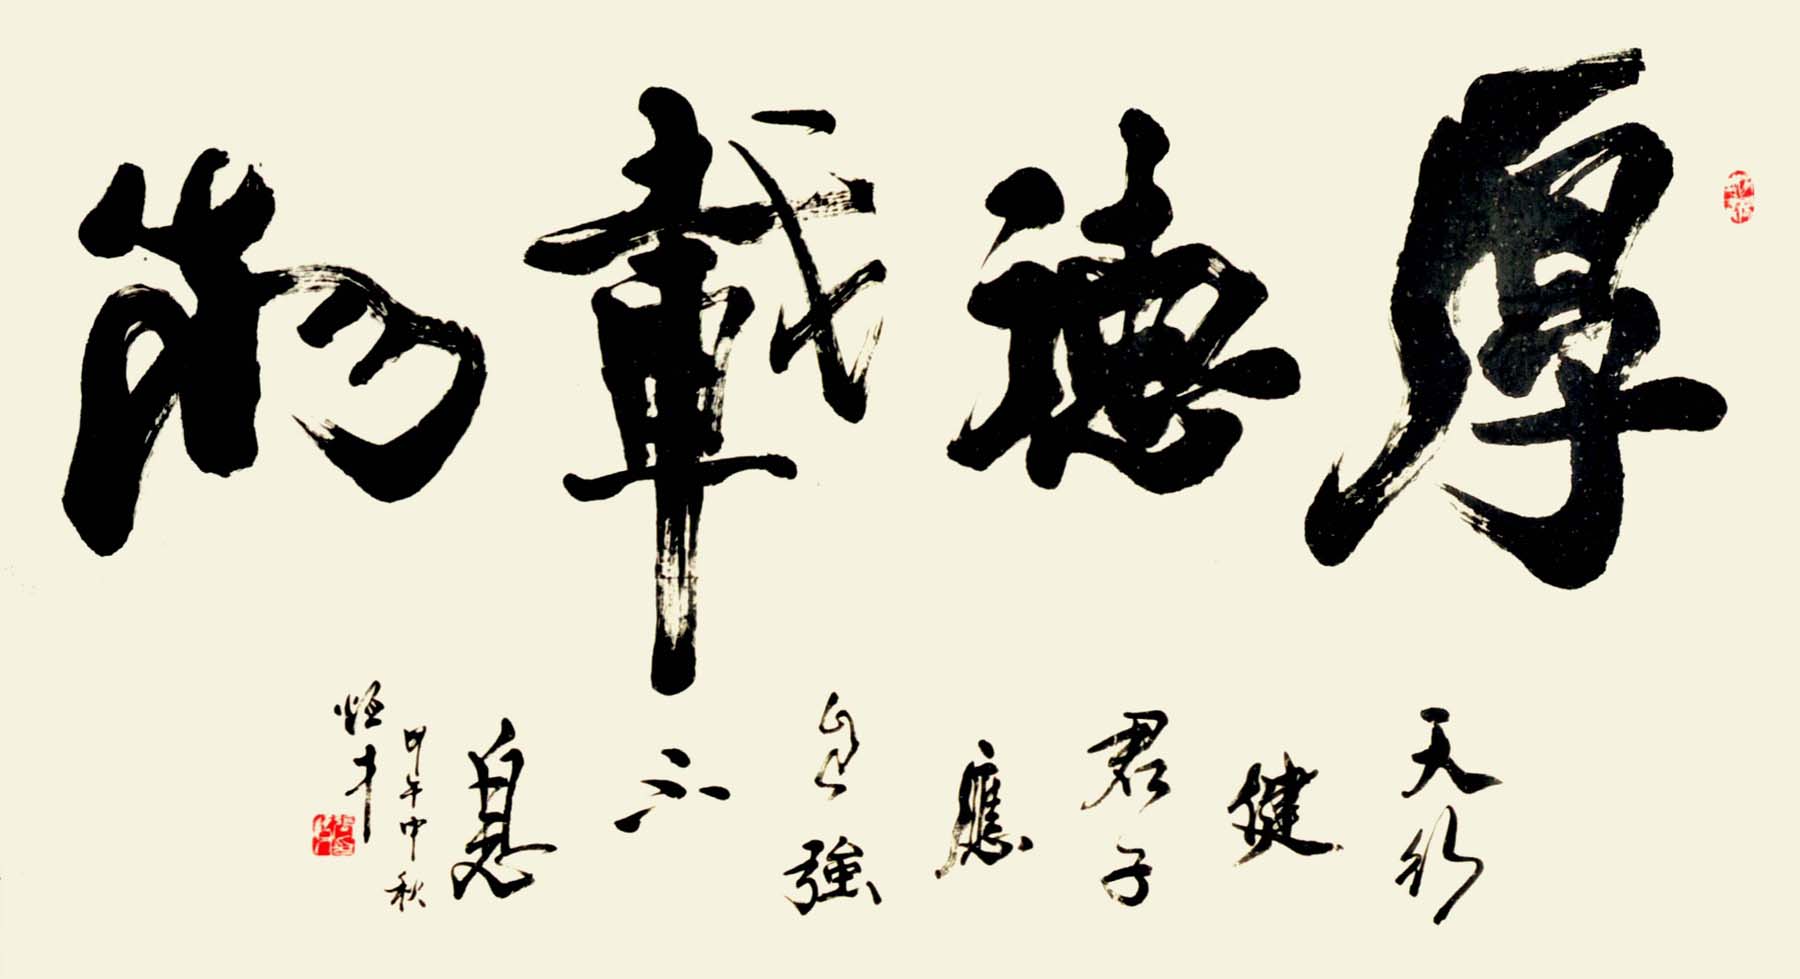 厚德載物
天行健君子應自強不息
甲午中秋
恒才